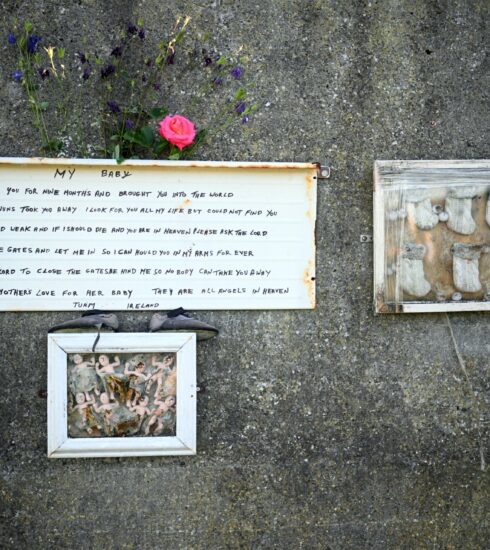 MY BABY
YOU FOR NINE MONTHS AND BROUGHT YOU INTO THE WORLD
TOOK YOU AWAY I LOOK FOR YOU ALL MY LIFE BUT COULD NOT FIND YOU
WEAK AND IF I SHOULD DIE AND YOU ARE IN HEAVEN PLEASE ASK THE LORD
GATES AND LET ME IN SO I CAN HOULD YOU IN MY ARMS FOR EVER
TO CLOSE THE GATES BE HIND ME SO NO BODY CAN TAKE YOU AWAY
LOVE FOR HER BABY THEY ARE ALL ANGELS IN HEAVEN
TUAM IRELAND